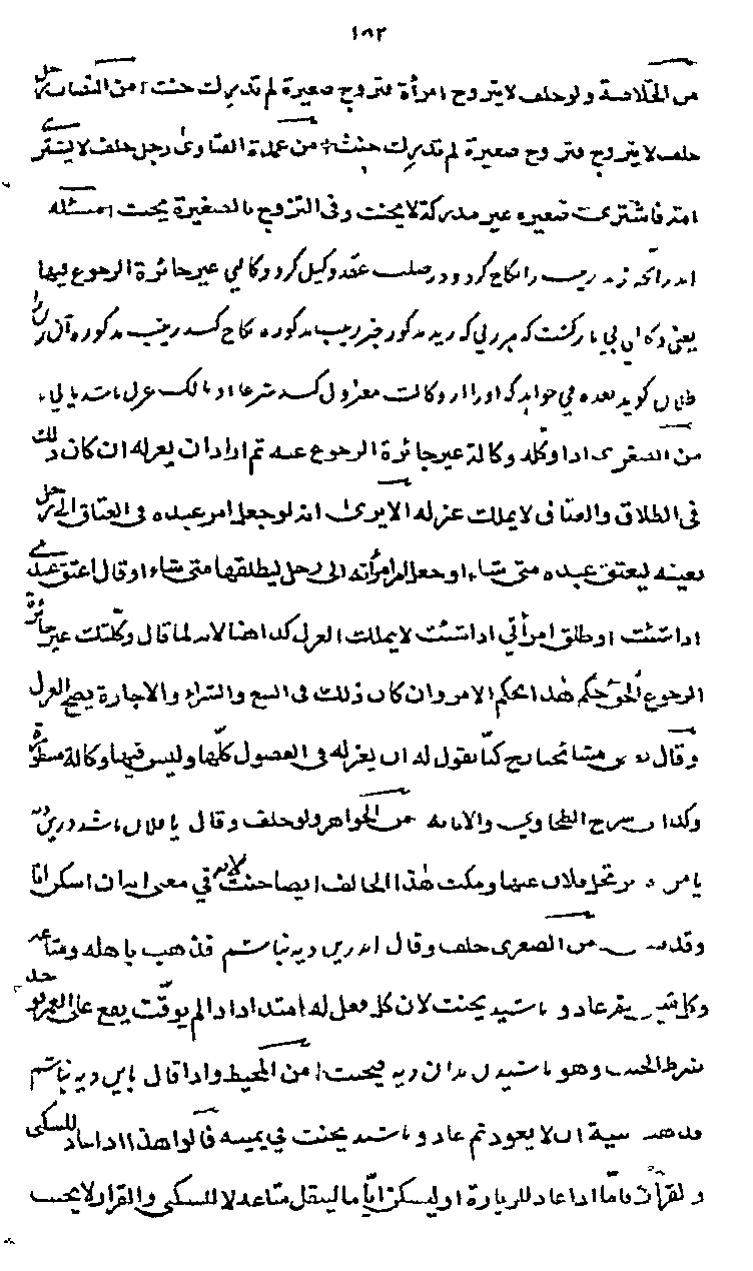 ١٨٢
من الخلاصة ولو حلف لا يتزوج امرأة فتزوج صغيرة لم تدرك حنث من النصاب رجل
حلف لا يتزوج فتزوج صغيرة لم تدرك حنث من عمدة الفتاوى رجل حلف لا يشترى
امة فاشترى صغيره غير مدركة لا يحنث وفى التزوج بالصغيرة يحنث مسئله
اندرانكه زيد زينب را نكاح كرد ودر صلب عقد وكيل كرد وكالي غير جائزة الرجوع فيها
يعنى كه هر زني كه زيد مذكور جز زينب مذكوره نكاح كند زينب مذكوره آن زن را
طلاق كويد بعده مي خواهد كه اورا از وكالت معزول كند شرعا او مالك عزل باشد يا ني
من الصغرى اذا وكله وكالة غير جائزة الرجوع عنه ثم اراد ان يعزله ان كان ذلك
فى الطلاق والعتاق لا يملك عزله الا يرى انه لو جعل امر عبده فى العتاق الى رجل
بعينه ليعتق عبده متى شاء او جعل امر امرأته الى رجل ليطلقها متى شاء او قال اعتق عبدى
اذا شئت او طلق امرأتي اذا شئت لا يملك العزل كذا هنا لانه لما قال وكلتك غير جائزة
الرجوع الحق حكم هذا بحكم الامر وان كان ذلك فى البيع والشراء والاجارة يصح العزل
وقال بعض مشائخنا كنا نقول له ان يعزله فى الفصول كلها وليس فيها وكالة مسطورة
وكذا شرح الطحاوي والابانه من الجواهر ولو حلف وقال يا فلان باشد درين ديه
يا من فلان عنها ومكث هذا الحالف ايضا حنث لانه في معنى
من الصغرى حلف وقال اندرين ديه نباشم فذهب باهله ومتاعه
ثم عاد وباشيد يحنث لان كل فعل له امتداد اذا لم يوقت يقع على العمر فوجد
شرط الحنث وهو باشيدن بدان ديه فيحنث من المحيط واذا قال باين ديه نباشم
فذهب بنية ان لا يعود ثم عاد وباشيد يحنث في يمينه قالوا هذا اذا عاد للسكنى
والقرار فاما اذا عاد للزيارة او ليسكن اياما لينقل متاعه لا للسكنى والقرار لا يحنث